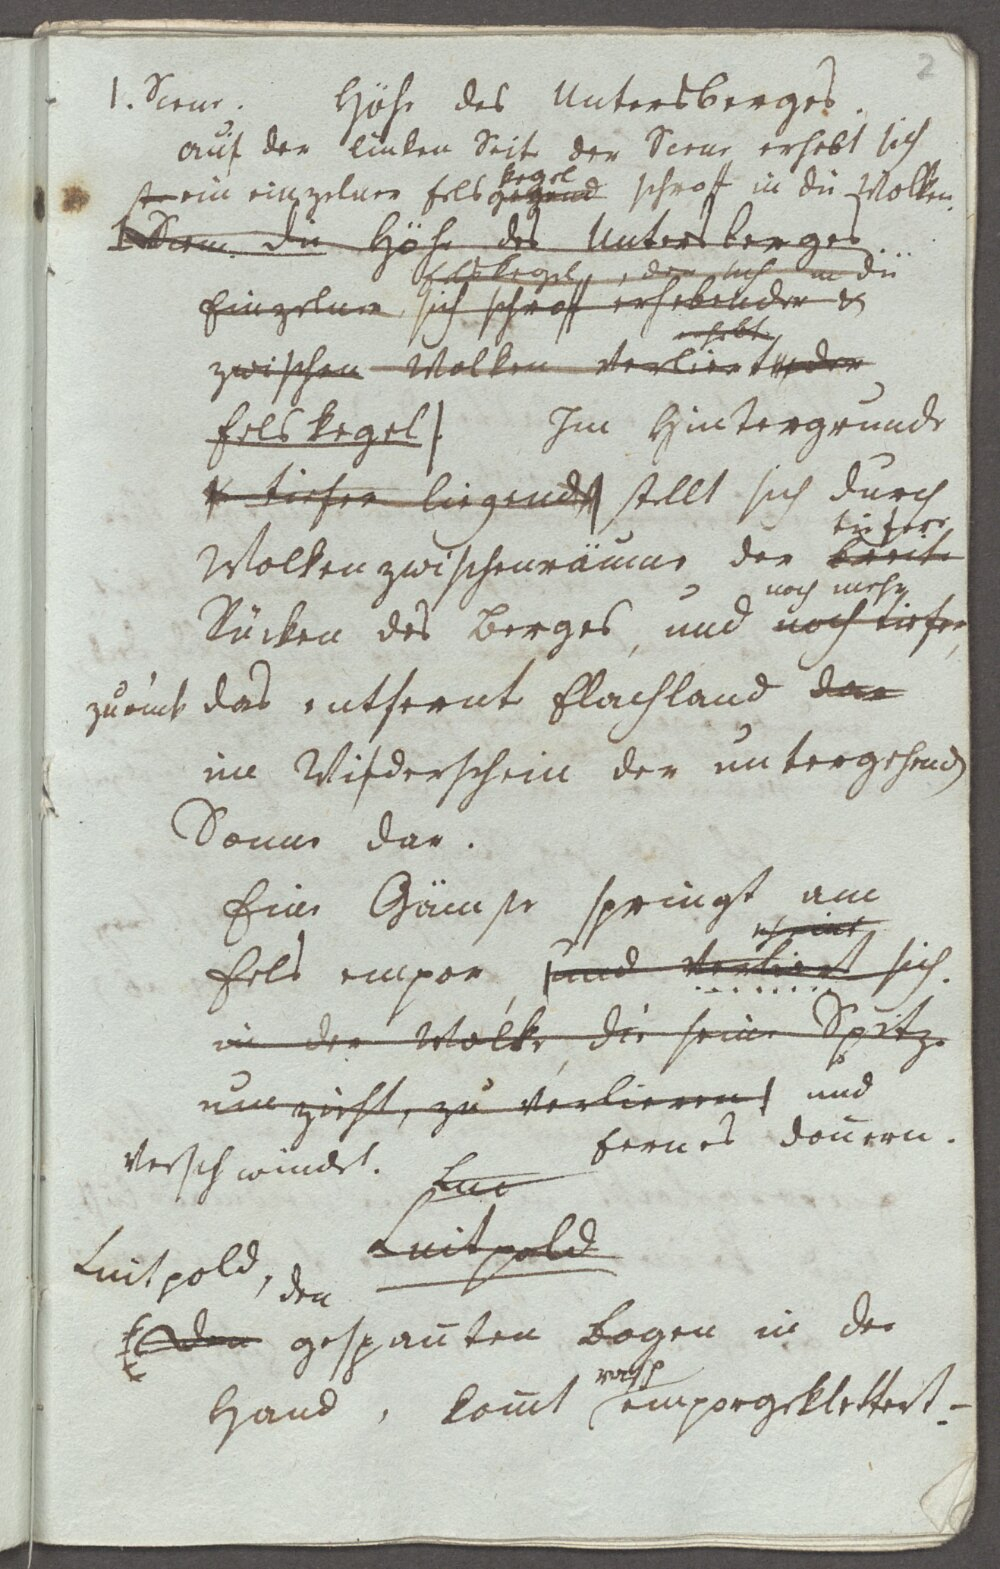 2
1. Scene. Höhe des Untersberges.
auf der linken Seite der Scene erhebt sich
ein einzelner Fels kegel gegend schroff in die Wolken.
1 Scene. Die Höhe des Untersberges.
Felskegel, der sich in die
Einzelner sich schroff erhebender
erhebt
zwischen Wolken verliert der
Felskegel. Im Hintergrunde
tiefer liegend stellt sich durch
tiefere
Wolkenzwischenräume der breite
noch mehr
Rücken des Berges, und noch tiefer,
zurück das entfernte Flachland dar
im Wiederschein der untergehend
Sonne dar.
Eine Gämse springt am
scheint
Fels empor, und verliert sich.
in der Wolke, die seine Spitze
umzieht, zu verlieren und
verschwindet. fernes Donnern.
Luitpold
Luitpold, den
den gespañten Bogen in der
rasch
Hand, kom̃t emporgeklettert –